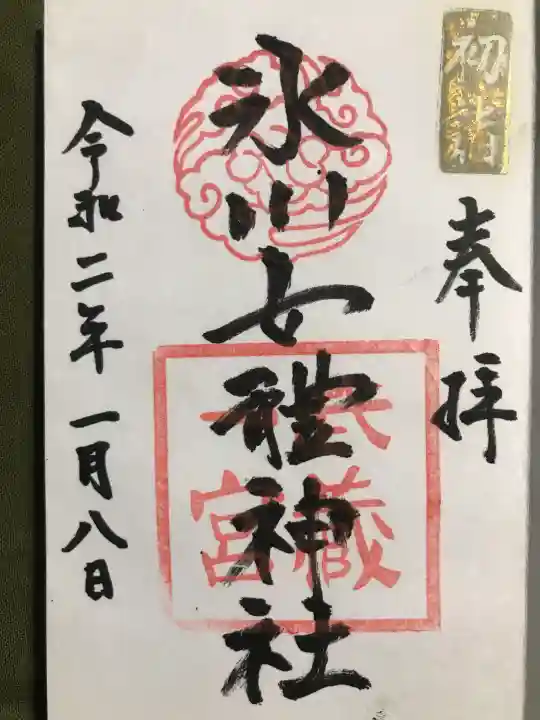 初詣
奉拝
氷川女體神社
武蔵
一宮
令和二年一月八日